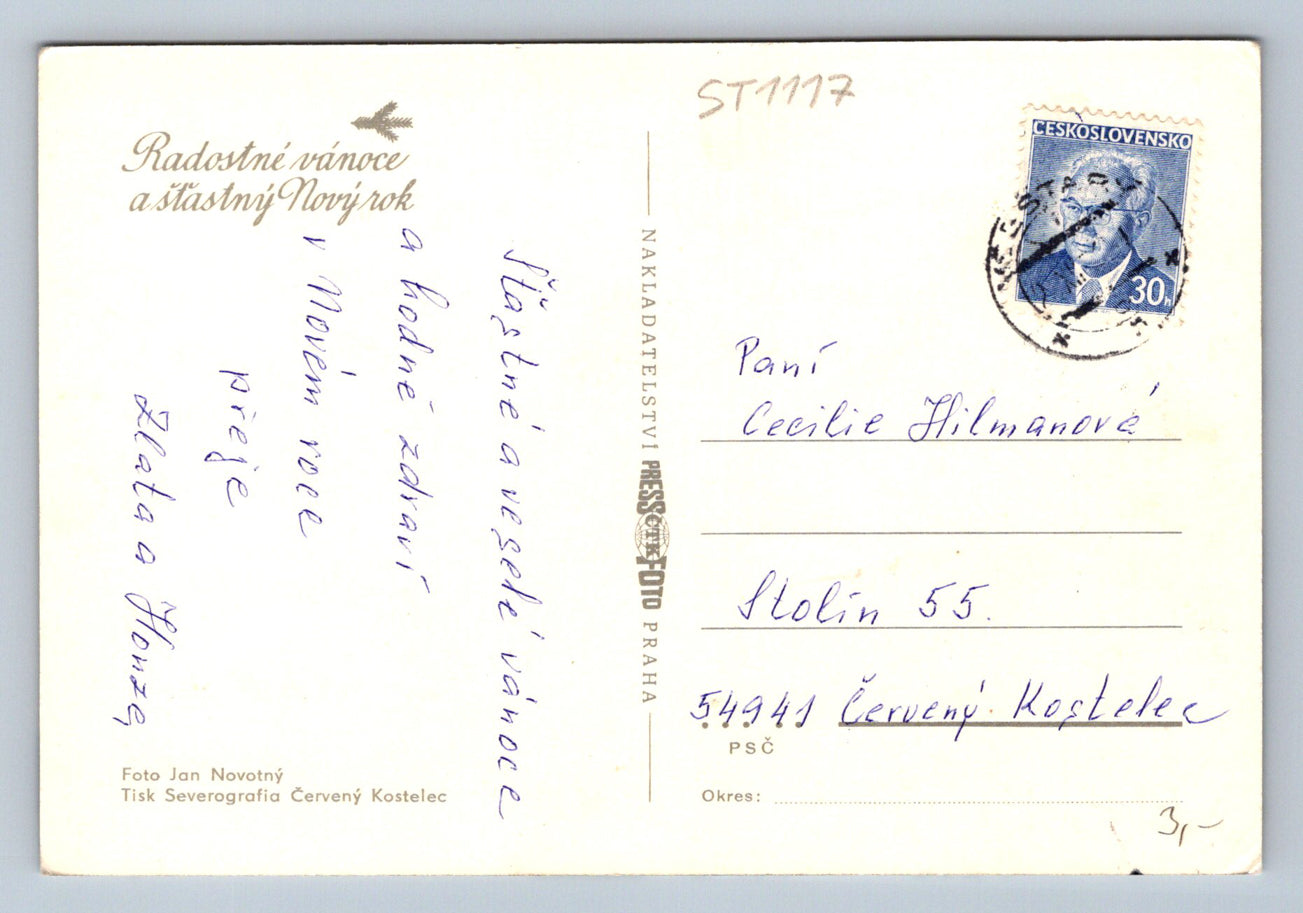 ST1117
Radostné vánoce
a šťastný Nový rok
Šťastné a veselé vánoce
a hodně zdraví
v Novém roce
přeje
Zlata a Honza
Foto Jan Novotný
Tisk Severografia Červený Kostelec
NAKLADATELSTVÍ PRESSFOTO PRAHA
ČTK
ČESKOSLOVENSKO
30h
Paní
Cecilie Hilmanová
Stolín 55.
54941 Červený Kostelec
PSČ
Okres:
3,-